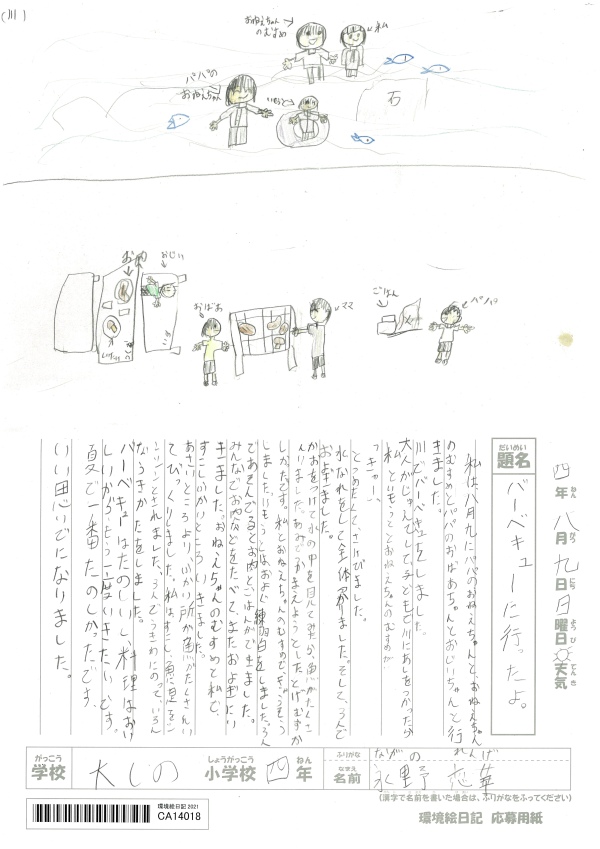 (川)
おねえちゃんのむすめ
私
パパのおねえちゃん
いもうと
石
おじい
おばあ
ママ
ごはん
パパ
四年八月九日日曜日 天気
ねん がつ にち ようび てんき
だいめい
題名
バーベキューに行ったよ。
私は、八月九にパパのおねえちゃんと、おねえちゃん
のむすめとパパのおばあちゃんとおじいちゃんと行
きました。
川でバーベキューをしました。
大人がじゅんびして、子どもで川にあしをつけたら
私といもうととおねえちゃんのむすめが
「つめたくて、さけびました。
水なれをして全体
およぎました。
かおをつけて水の中を見てみたら、魚がたくさん
いました。あみでつかまえようとしたけどむずか
しかったです。私とおねえちゃんのむすめで、きょうそう
しました。もう少しおよぐ練習をしました。
であそんでるとお肉とごはんができました。
みんなでお肉などをたべて、またおよぎにい
きました。おねえちゃんのむすめと私で、
すこしふかいところにいきました。
あさいところより、ふかい所が魚がたくさんい
てびっくりしました。私は、すこし魚に足を
なるきがたをしました。
バーベキューはたのしいし、料理はおい
しいから、もう一度いきたいです。
夏で一番たのしかったです。
いい思いでになりました。
がっこう
学校
大じの
しょうがっこう
小学校
四
ねん
年
ふりがな
ながの れんげ
なまえ
名前
永野 恋華
(漢字で名前を書いた場合は、ふりがなをふってください)
環境絵日記 2021
CA14018
環境絵日記 応募用紙